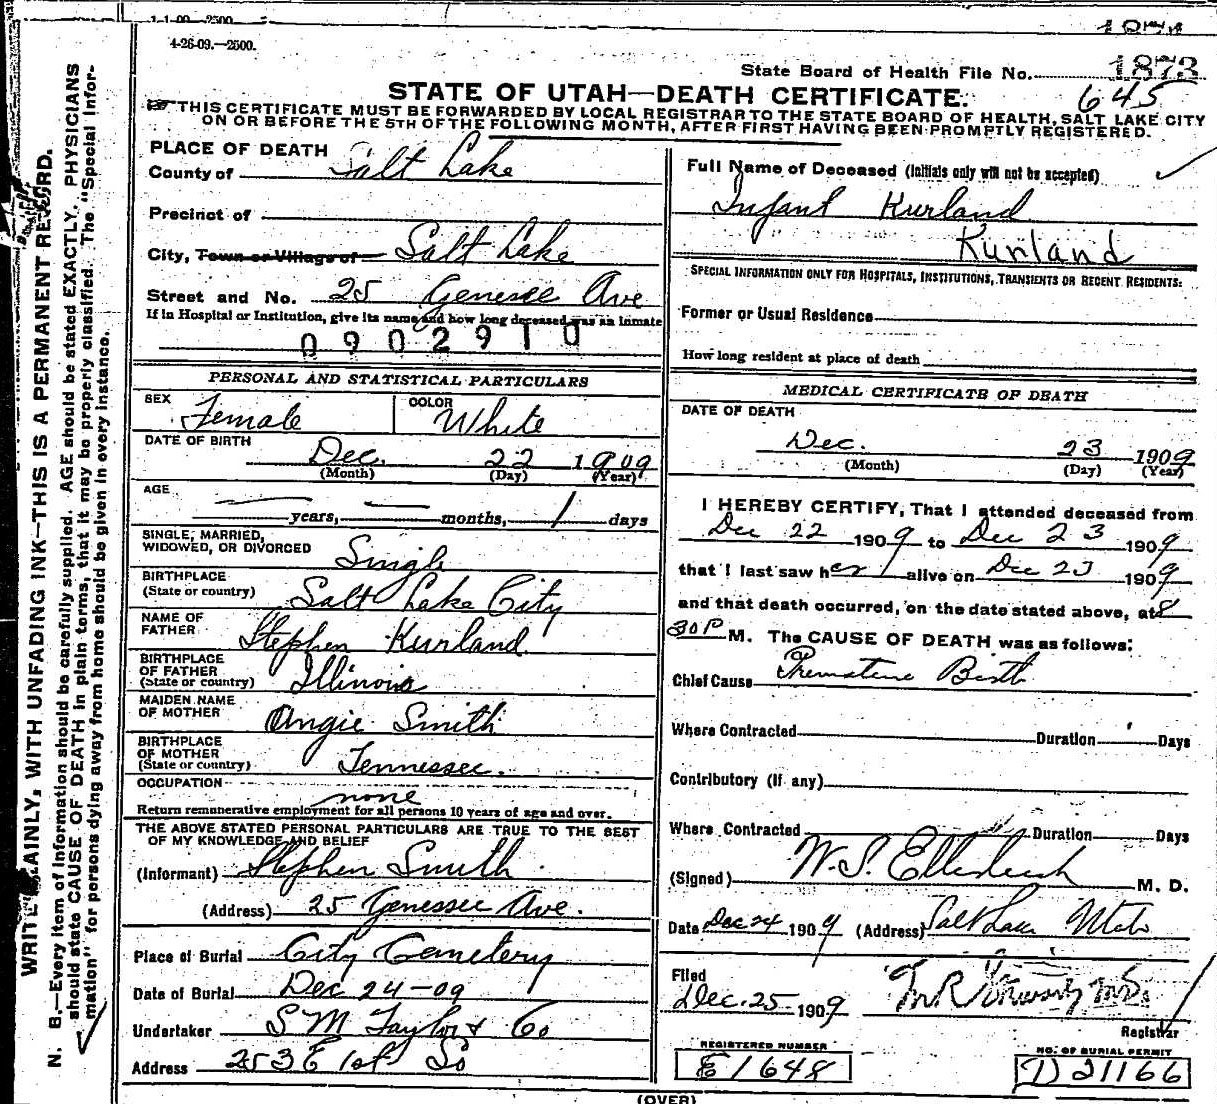 1-1-09 2500.
4-26-09.—2500.
State Board of Health File No. 1873
645
STATE OF UTAH—DEATH CERTIFICATE.
THIS CERTIFICATE MUST BE FORWARDED BY LOCAL REGISTRAR TO THE STATE BOARD OF HEALTH, SALT LAKE CITY
ON OR BEFORE THE 5TH OF THE FOLLOWING MONTH, AFTER FIRST HAVING BEEN PROMPTLY REGISTERED.
WRITE PLAINLY, WITH UNFADING INK—THIS IS A PERMANENT RECORD.
N. B.—Every item of information should be carefully supplied. AGE should be stated EXACTLY. PHYSICIANS
should state CAUSE OF DEATH in plain terms, that it may be properly classified. The "Special Infor-
mation" for persons dying away from home should be given in every instance.
PLACE OF DEATH
County of Salt Lake
Precinct of
City, Town or Village of Salt Lake
Street and No. 25 Genesee Ave
If in Hospital or Institution, give its name and how long deceased was an inmate
0902910
PERSONAL AND STATISTICAL PARTICULARS
SEX Female COLOR White
DATE OF BIRTH Dec. 22 1909
(Month) (Day) (Year)
AGE — years, — months, 1 days
SINGLE, MARRIED,
WIDOWED, OR DIVORCED Single
BIRTHPLACE
(State or country) Salt Lake City
NAME OF
FATHER Stephen Kurland
BIRTHPLACE
OF FATHER
(State or country) Illinois
MAIDEN NAME
OF MOTHER Angie Smith
BIRTHPLACE
OF MOTHER
(State or country) Tennessee.
OCCUPATION none
Return remunerative employment for all persons 10 years of age and over.
THE ABOVE STATED PERSONAL PARTICULARS ARE TRUE TO THE BEST
OF MY KNOWLEDGE AND BELIEF
(Informant) Stephen Smith
(Address) 25 Genessee Ave.
Place of Burial City Cemetery
Date of Burial Dec 24-09
Undertaker S M Taylor & Co
Address 253 E 1st So
Full Name of Deceased (Initials only will not be accepted)
Infant Kurland
Kurland
SPECIAL INFORMATION ONLY FOR HOSPITALS, INSTITUTIONS, TRANSIENTS OR RECENT RESIDENTS:
Former or Usual Residence
How long resident at place of death
MEDICAL CERTIFICATE OF DEATH
DATE OF DEATH
Dec. 23 1909
(Month) (Day) (Year)
I HEREBY CERTIFY, That I attended deceased from
Dec 22 1909 to Dec 23 1909
that I last saw her alive on Dec 23 1909
and that death occurred, on the date stated above, at 8
30 P M. The CAUSE OF DEATH was as follows:
Chief Cause Premature Birth
Where Contracted Duration Days
Contributory (if any)
Where Contracted Duration Days
(Signed) W. S. M. D.
Date Dec 24 1909 (Address) Salt Lake Utah
Filed
Dec. 25 1909
Registrar
REGISTERED NUMBER
E 1648
NO. OF BURIAL PERMIT
D 21166
(OVER)